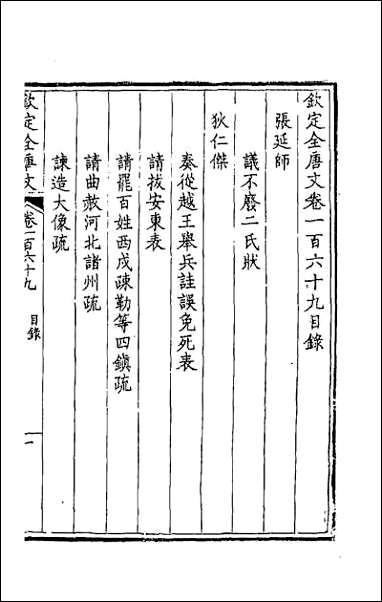 欽定全唐文卷一百六十九目錄
張延師
議不廢二氏狀
狄仁傑
奏從越王舉兵詿誤免死表
請拔安東表
請罷百姓西戍疎勒等四鎮疏
請曲赦河北諸州疏
諫造大像疏
欽定全唐文
卷一百六十九
目錄
一